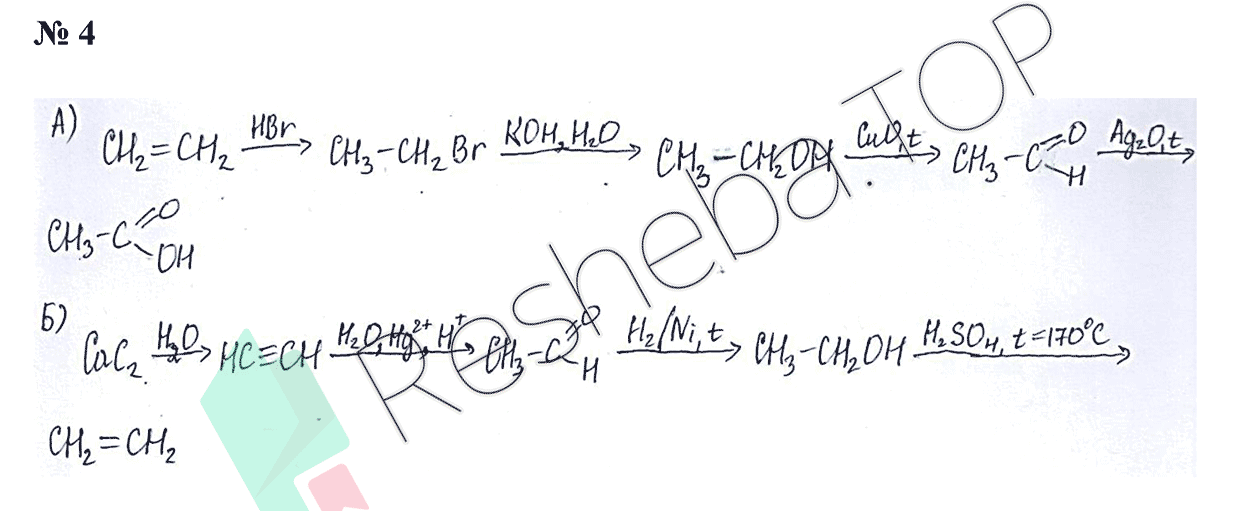 № 4
А) CH₂=CH₂ HBr→ CH₃-CH₂Br KOH, H₂O→ CH₃-CH₂OH CuO, t→ CH₃-C=O-H Ag₂O, t→
CH₃-C=O-OH
Б) CaC₂ H₂O→ HC≡CH H₂O, Hg²⁺, H⁺→ CH₃-C=O H H₂/Ni, t→ CH₃-CH₂OH H₂SO₄, t=170°C→
CH₂=CH₂
Resheba.TOP